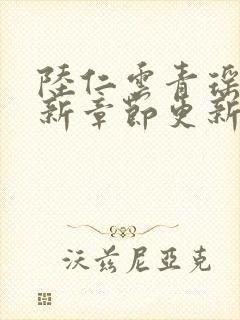 陸仁雲青瑤
新章節更新
沃茲尼亞克